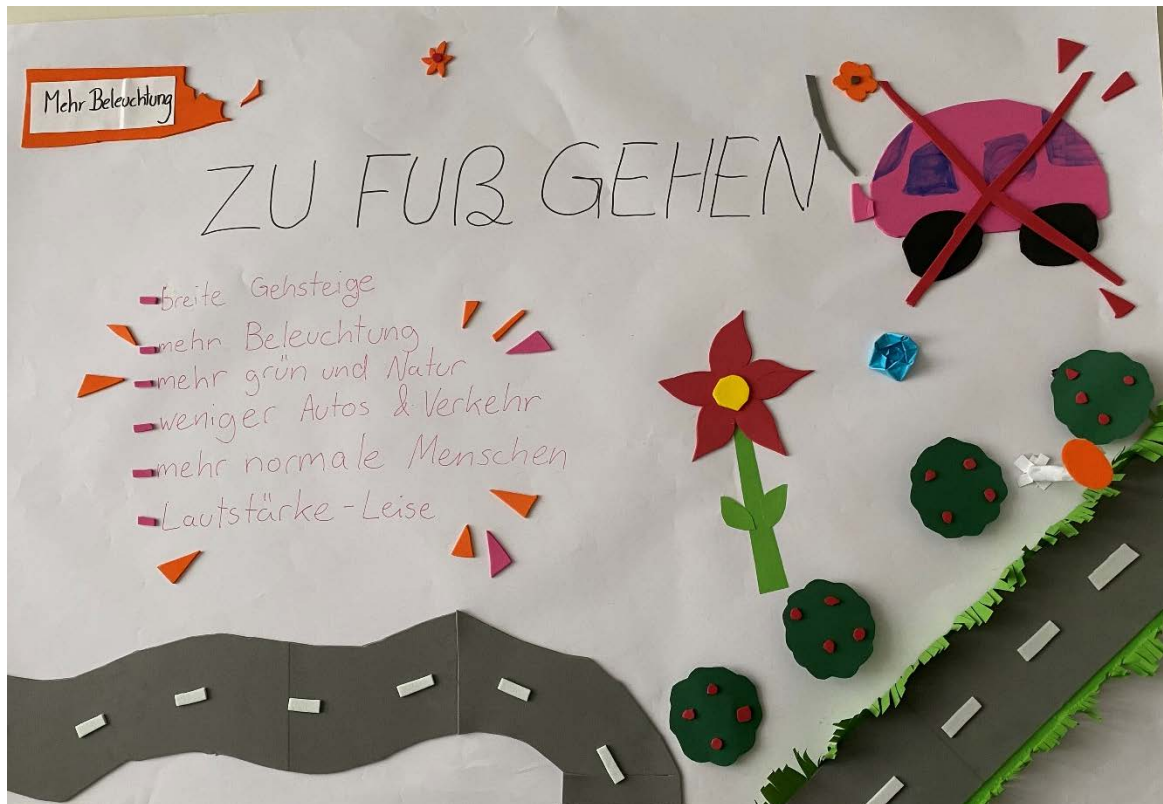 Mehr Beleuchtung
ZU FUß GEHEN
breite Gehsteige
mehr Beleuchtung
mehr grün und Natur
weniger Autos & Verkehr
mehr normale Menschen
Lautstärke - Leise